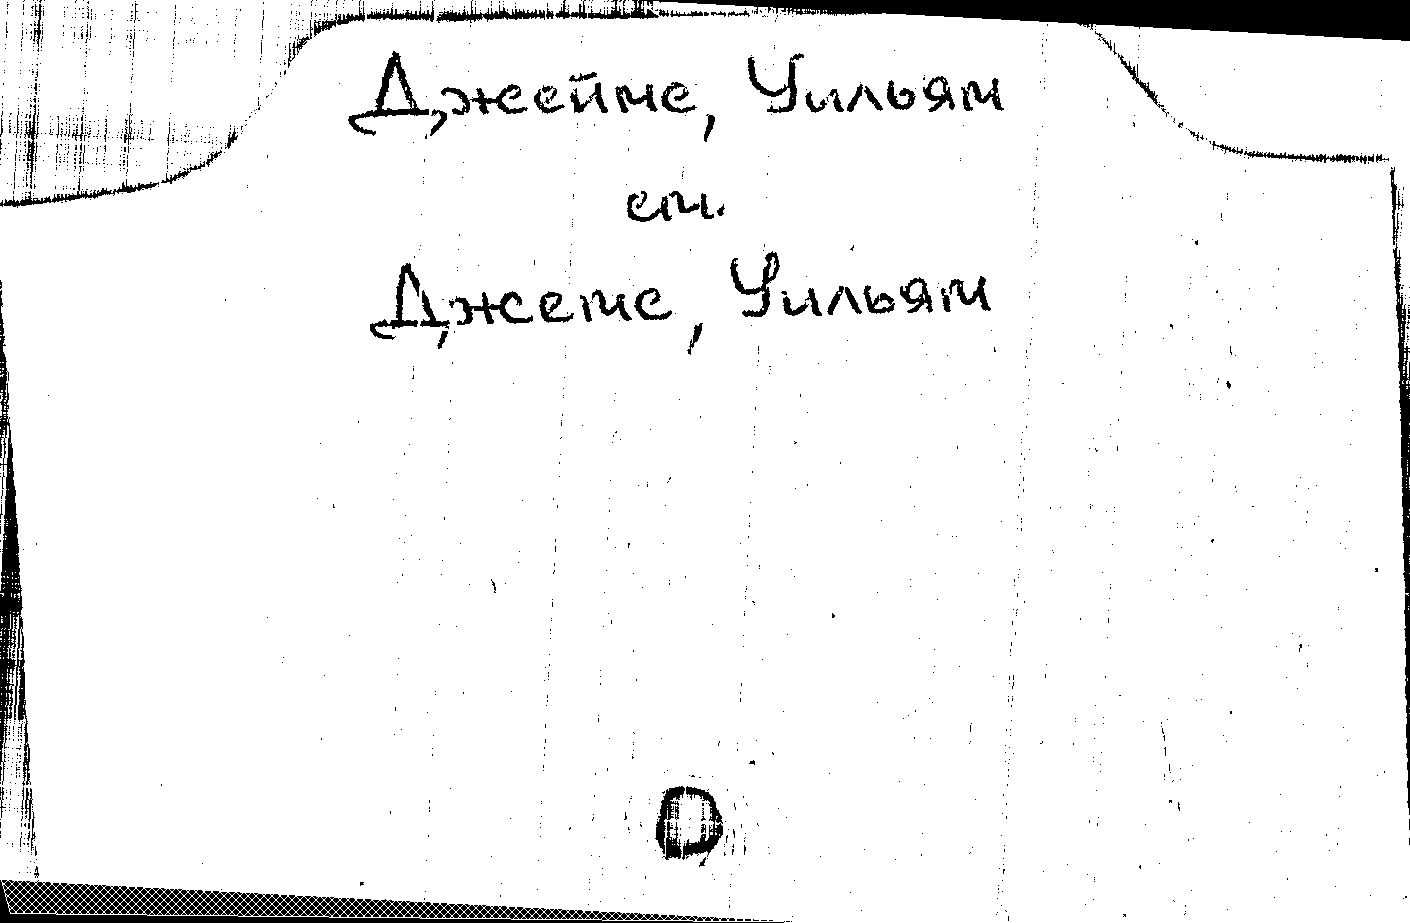 Джеймс, Уильям
см.
Джемс, Уильям